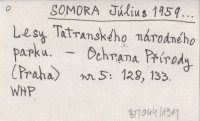 o SOMORA Július 1959...
Lesy Tatranského národného
parku. - Ochrana Přírody
(Praha) nr 5: 128, 133.
WHP